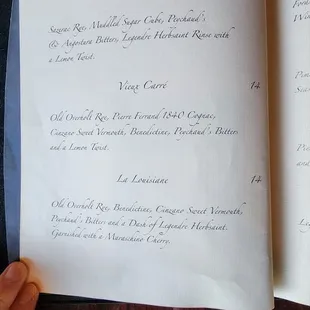 Sazerac Rye, Muddled Sugar Cube, Peychaud's
& Angostura Bitters, Legendre Herbsaint Rinse with
a Lemon Twist.
Vieux Carré 14
Old Overholt Rye, Pierre Ferrand 1840 Cognac,
Cinzano Sweet Vermouth, Benedictine, Peychaud's Bitters
and a Lemon Twist.
La Louisiane 14
Old Overholt Rye, Benedictine, Cinzano Sweet Vermouth,
Peychaud's Bitters and a Dash of Legendre Herbsaint.
Garnished with a Maraschino Cherry.